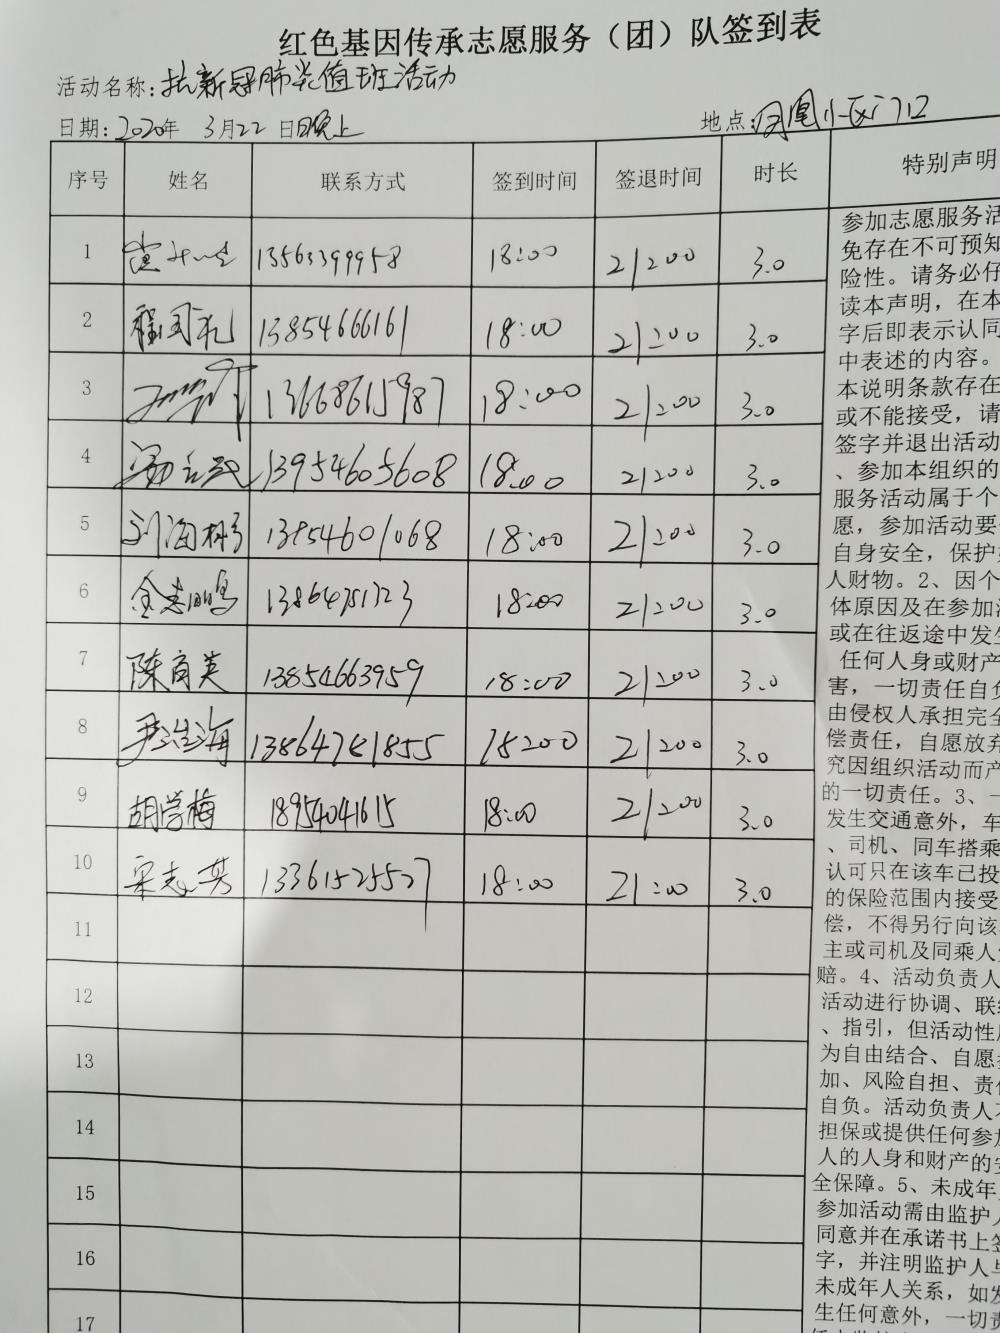 红色基因传承志愿服务（团）队签到表
活动名称：抗新冠肺炎值班活动
日期：2020年 3月22日晚上 地点：凤凰小区门口
序号 姓名 联系方式 签到时间 签退时间 时长 特别声明
1 13563399958 18:00 21:00 3.0
2 程国礼 13854666161 18:00 21:00 3.0
3 13668615987 18:00 21:00 3.0
4 13954605608 18:00 21:00 3.0
5 刘海彬 13854601068 18:00 21:00 3.0
6 金志鹏 13864751323 18:00 21:00 3.0
7 陈育英 13854663959 18:00 21:00 3.0
8 尹浩海 13864781855 18:00 21:00 3.0
9 胡学梅 18954041615 18:00 21:00 3.0
10 宋志英 13361525527 18:00 21:00 3.0
11
12
13
14
15
16
17
参加志愿服务活
免存在不可预知
险性。请务必仔
读本声明，在本
字后即表示认同
中表述的内容。
本说明条款存在
或不能接受，请
签字并退出活动
、参加本组织的
服务活动属于个
愿，参加活动要
自身安全，保护
人财物。2、因个
体原因及在参加
或在往返途中发生
任何人身或财产
害，一切责任自负
由侵权人承担完全
偿责任，自愿放弃
究因组织活动而产
的一切责任。3、一
发生交通意外，车
、司机、同车搭乘
认可只在该车已投
的保险范围内接受
偿，不得另行向该
主或司机及同乘人
赔。4、活动负责人
活动进行协调、联
、指引，但活动性
为自由结合、自愿
加、风险自担、责任
自负。活动负责人不
担保或提供任何参加
人的人身和财产的安
全保障。5、未成年
参加活动需由监护人
同意并在承诺书上签
字，并注明监护人与
未成年人关系，如发
生任何意外，一切责